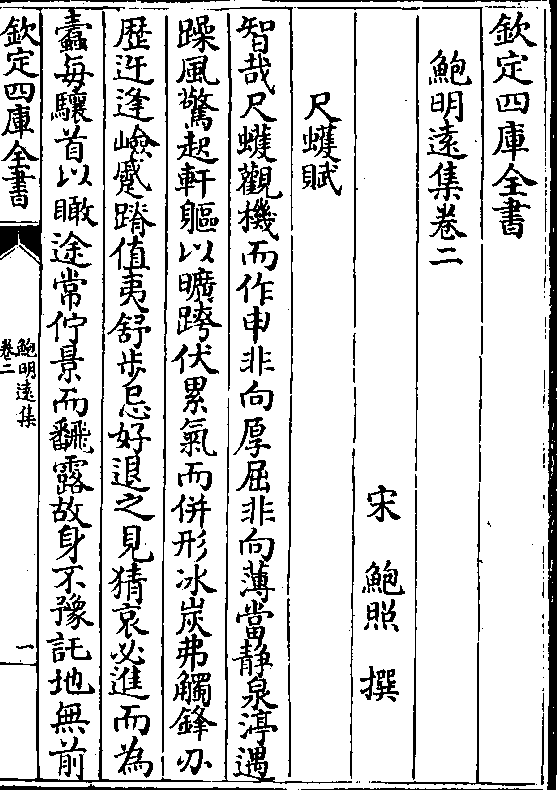 欽定四庫全書
鮑明遠集卷二
宋 鮑照 撰
尺蠖賦
智哉尺蠖觀機而作申非向厚屈非向薄當靜泉渟遇
躁風驚起軒軀以曠跨伏累氣而併形冰炭弗觸鋒刃
歴迕逢嶮蹙蹐值夷舒歩忌好退之見猜哀必進而為
蠹每驤首以瞰途常佇景而翻露故身不豫託地無前
欽定四庫全書
鮑明遠集
卷二
一